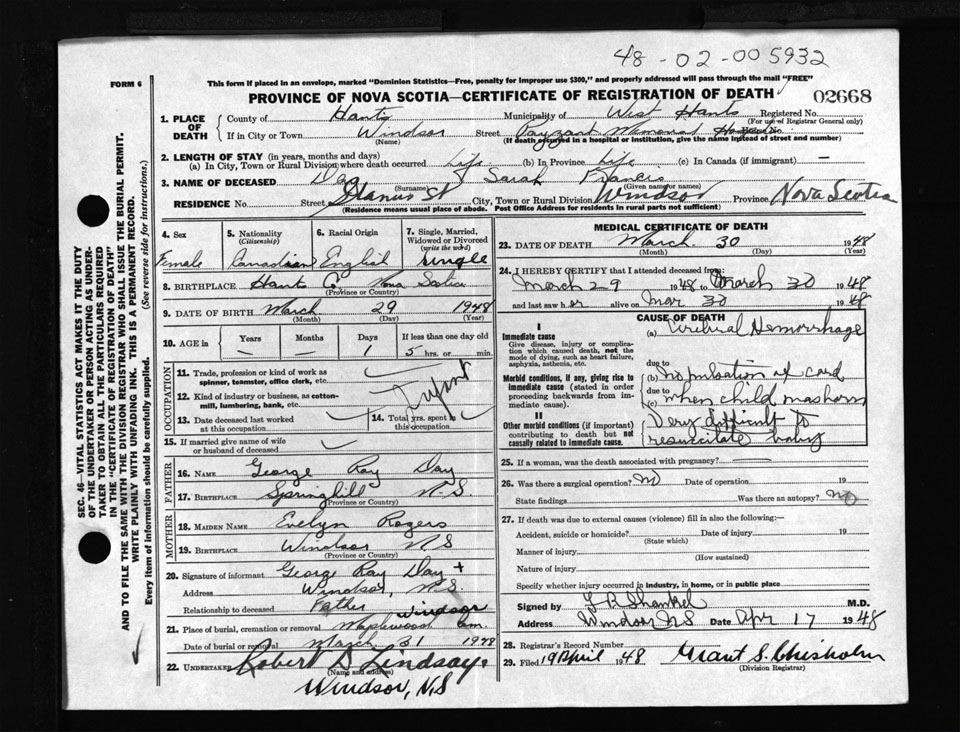 48-02-005932
FORM 6
This form if placed in an envelope, marked "Dominion Statistics—Free, penalty for improper use $300," and properly addressed will pass through the mail "FREE"
PROVINCE OF NOVA SCOTIA—CERTIFICATE OF REGISTRATION OF DEATH
02668
1. PLACE OF DEATH
County of Hants Municipality of West Hants Registered No.
(For use of Registrar General only)
If in City or Town Windsor Street Payzant Memorial
(Name) (If death occurred in a hospital or institution, give the name instead of street and number)
2. LENGTH OF STAY (in years, months and days)
(a) In City, Town or Rural Division where death occurred Life (b) In Province Life (c) In Canada (if immigrant) —
3. NAME OF DECEASED Day Sarah Francis
(Surname) (Given name or names)
RESIDENCE No. Street St City, Town or Rural Division Windsor Province Nova Scotia
(Residence means usual place of abode. Post Office Address for residents in rural parts not sufficient)
4. Sex
Female
5. Nationality
(Citizenship)
Canadian
6. Racial Origin
English
7. Single, Married, Widowed or Divorced
(write the word)
single
8. BIRTHPLACE Hant Co. Nova Scotia
(Province or Country)
9. DATE OF BIRTH March 29 1948
(Month) (Day) (Year)
10. AGE in Years Months Days If less than one day old
— — 1 5 hrs. or min.
OCCUPATION
11. Trade, profession or kind of work as
spinner, teamster, office clerk, etc.
12. Kind of industry or business, as cotton-
mill, lumbering, bank, etc.
Infant
13. Date deceased last worked
at this occupation
14. Total yrs. spent in
this occupation
15. If married give name of wife
or husband of deceased
FATHER
16. NAME George Ray Day
17. BIRTHPLACE Springhill N.S.
(Province or Country)
MOTHER
18. MAIDEN NAME Evelyn Rogers
19. BIRTHPLACE Windsor N.S
(Province or Country)
20. Signature of informant George Ray Day +
Address Windsor, N.S.
Relationship to deceased Father
21. Place of burial, cremation or removal Maplewood Cem. Windsor
Date of burial or removal March 31 1948
22. UNDERTAKER Robert D Lindsay
(Name and address)
Windsor, N.S
MEDICAL CERTIFICATE OF DEATH
23. DATE OF DEATH March 30 1948
(Month) (Day) (Year)
24. I HEREBY CERTIFY that I attended deceased from:
March 29 1948 to March 30 1948
and last saw her alive on Mar 30 1948
CAUSE OF DEATH
I
Immediate cause
Give disease, injury or complication which caused death, not the mode of dying, such as heart failure, asphyxia, asthenia, etc.
(a) Cerebral Hemorrhage
Morbid conditions, if any, giving rise to immediate cause (stated in order proceeding backwards from immediate cause).
due to
(b) no pulsation of cord
due to
(c) when child was born
II
Other morbid conditions (if important) contributing to death but not causally related to immediate cause.
Very difficult to
resuscitate baby
25. If a woman, was the death associated with pregnancy? —
26. Was there a surgical operation? no Date of operation 19
State findings Was there an autopsy? no
27. If death was due to external causes (violence) fill in also the following:—
Accident, suicide or homicide? Date of injury 19
(State which)
Manner of injury
(How sustained)
Nature of injury
Specify whether injury occurred in industry, in home, or in public place
Signed by M.D.
Address Windsor NS Date Apr 17 1948
28. Registrar's Record Number
29. Filed 19 April 1948 Grant S. Chisholm
(Division Registrar)
SEC. 46—VITAL STATISTICS ACT MAKES IT THE DUTY
OF THE UNDERTAKER OR PERSON ACTING AS UNDERTAKER TO OBTAIN ALL THE PARTICULARS REQUIRED
IN THE "CERTIFICATE OF REGISTRATION OF DEATH"
AND TO FILE THE SAME WITH THE DIVISION REGISTRAR WHO SHALL ISSUE THE BURIAL PERMIT.
WRITE PLAINLY WITH UNFADING INK. THIS IS A PERMANENT RECORD.
Every item of information should be carefully supplied. (See reverse side for instructions.)